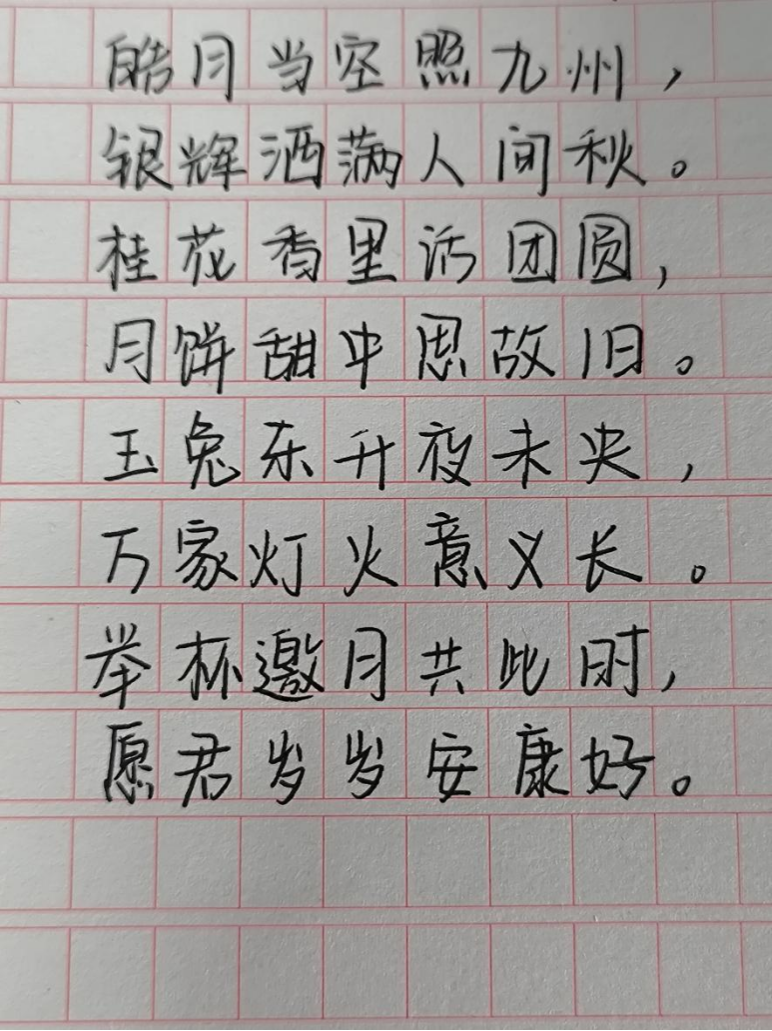 皓月当空照九州，
银辉洒满人间秋。
桂花香里话团圆，
月饼甜中思故旧。
玉兔东升夜未央，
万家灯火意义长。
举杯邀月共此时，
愿君岁岁安康好。